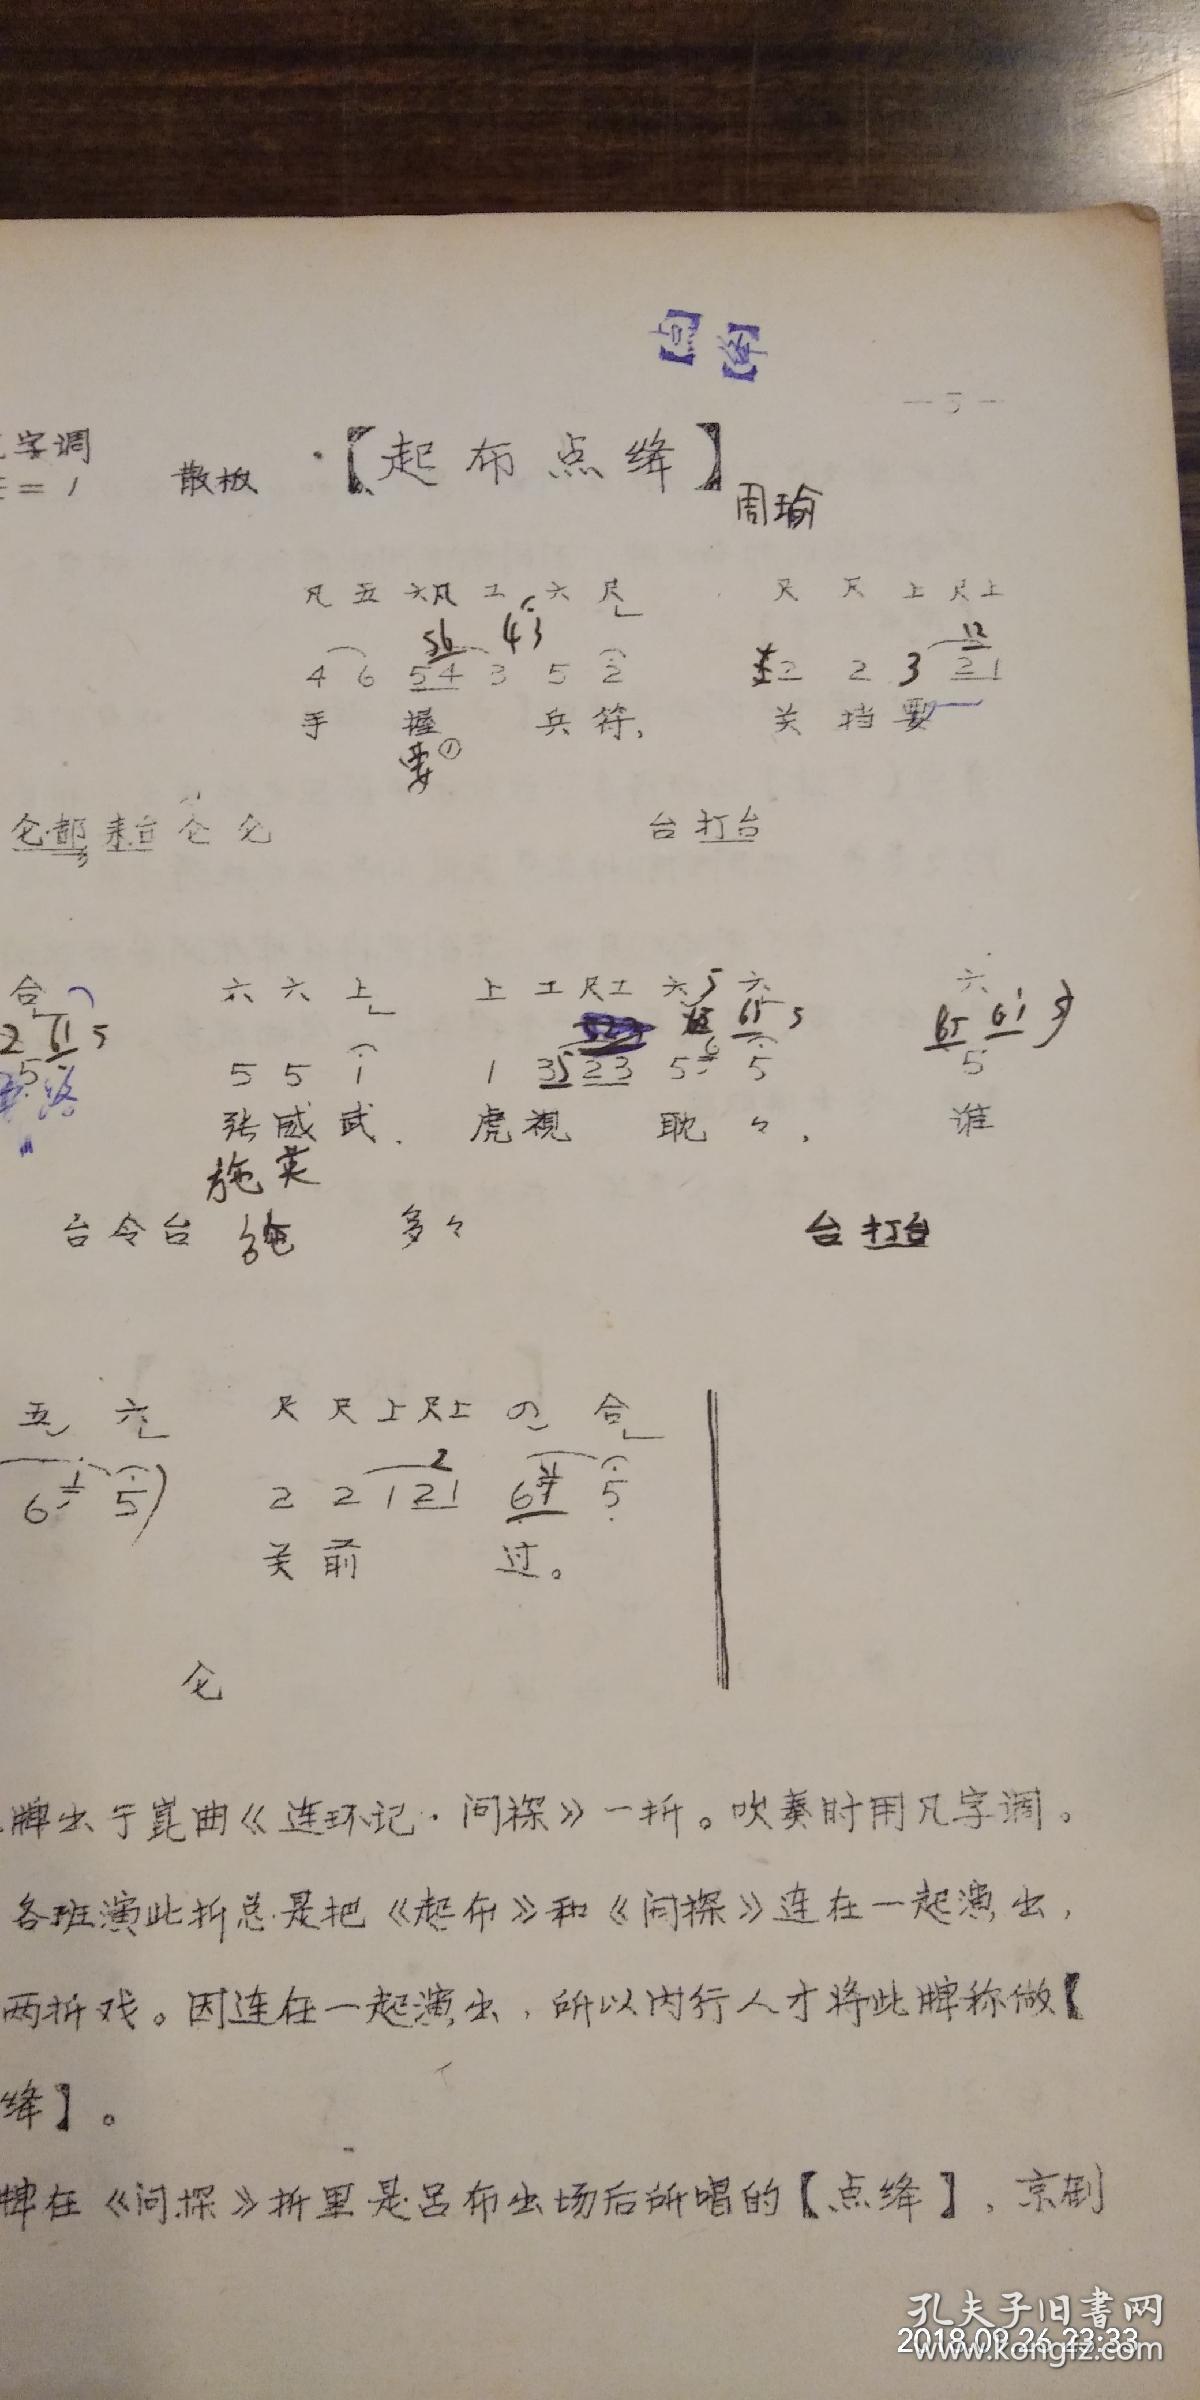 【点
【绛
— 5 —
字调
= 1 散板 【起布点绛】
周瑜
凡 五 六凡 工 六 尺 尺 尺 上 尺上
56 43 12
4 6 54 3 5 2 2 2 3 21
手 握 兵 符, 关 挡 要
要①
仑都 来台 仑 仑 台 打台
合 六 六 上 上 工 尺工 六 六 六
2 61 5 5 65 5 65 61 5
5 5 5 1 1 35 23 5 6 5 5
张 威 武. 虎 视 耽 々, 谁
施 英
台 令 台 多々 台 打台
五 六 尺 尺 上 尺上 の 合
2
6 5 2 2 1 21 6 5
关 前 过。
仑
牌出于崑曲《连环记·问探》一折。吹奏时用凡字调。
各班演此折总是把《起布》和《问探》连在一起演出,
两折戏。因连在一起演出,所以内行人才将此牌称做【
绛】。
牌在《问探》折里是吕布出场后所唱的【点绛】,京剧
孔夫子旧书网
2018.09.26 23:33
www.kongfz.com